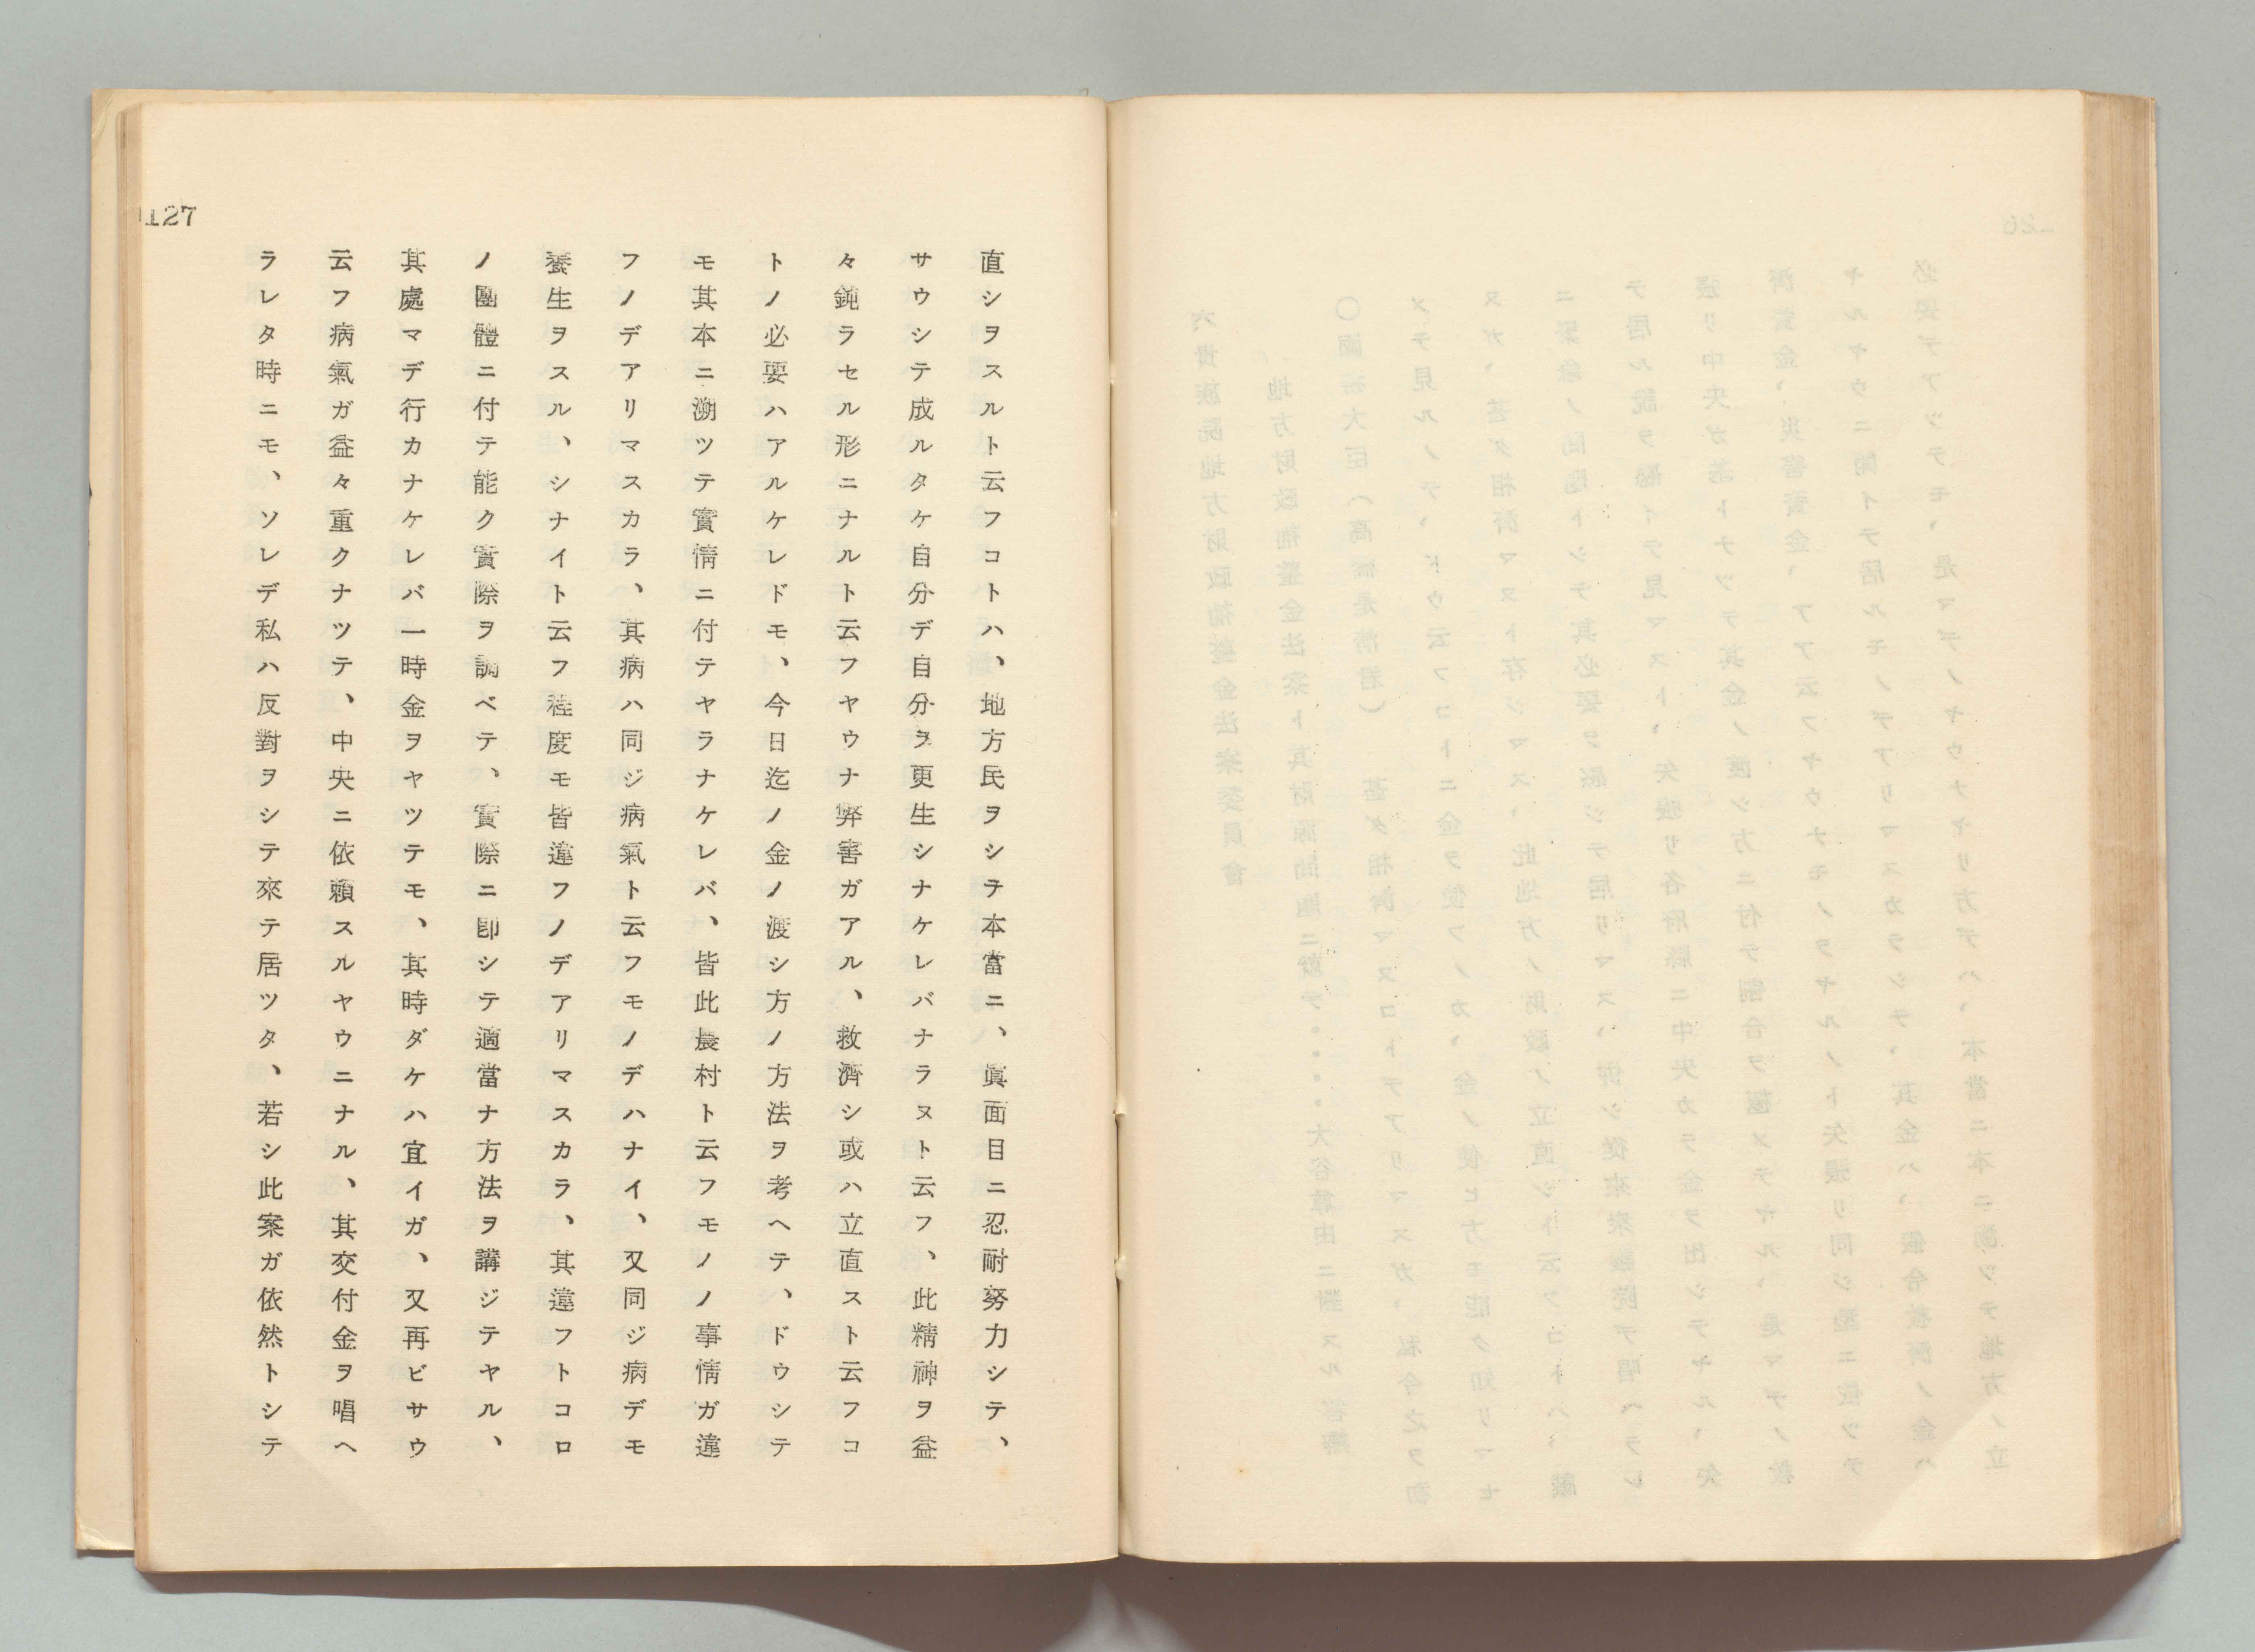 直シヲスルト云フコトハ、地方民ヲシテ本當ニ、眞面目ニ忍耐努力シテ、
サウシテ成ルタケ自分デ自分ヲ更生シナケレバナラヌト云フ、此精神ヲ益
々鈍ラセル形ニナルト云フヤウナ弊害ガアル、救濟シ或ハ立直スト云フコ
トノ必要ハアルケレドモ、今日迄ノ金ノ渡シ方ノ方法ヲ考ヘテ、ドウシテ
モ其本ニ溯ツテ實情ニ付テヤラナケレバ、皆此農村ト云フモノノ事情ガ違
フノデアリマスカラ、其病ハ同ジ病氣ト云フモノデハナイ、又同ジ病デモ
養生ヲスル、シナイト云フ程度モ皆違フノデアリマスカラ、其違フトコロ
ノ團體ニ付テ能ク實際ヲ調ベテ、實際ニ卽シテ適當ナ方法ヲ講ジテヤル、
其處マデ行カナケレバ一時金ヲヤツテモ、其時ダケハ宜イガ、又再ビサウ
云フ病氣ガ益々重クナツテ、中央ニ依頼スルヤウニナル、其交付金ヲ唱ヘ
ラレタ時ニモ、ソレデ私ハ反對ヲシテ來テ居ツタ、若シ此案ガ依然トシテ
127